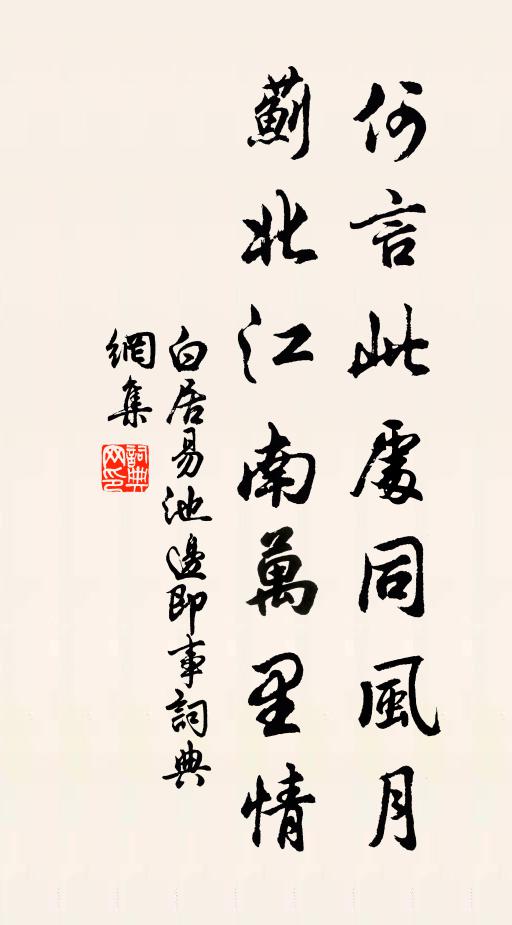 何言此處同風月
薊北江南萬里情
白居易池邊即事詞典
網集
詞典
网印